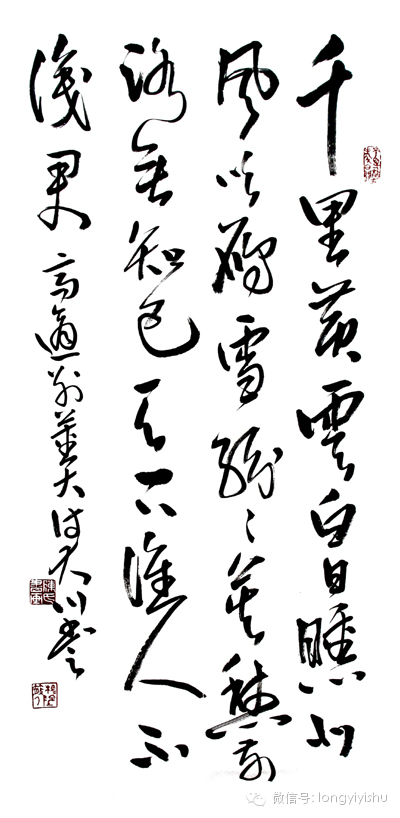 千里黄雲白日曛北
風吹雁雪紛々莫愁前
路無知己天下誰人不
識君 高適别董大诗大川书
微信号: longyiyishu